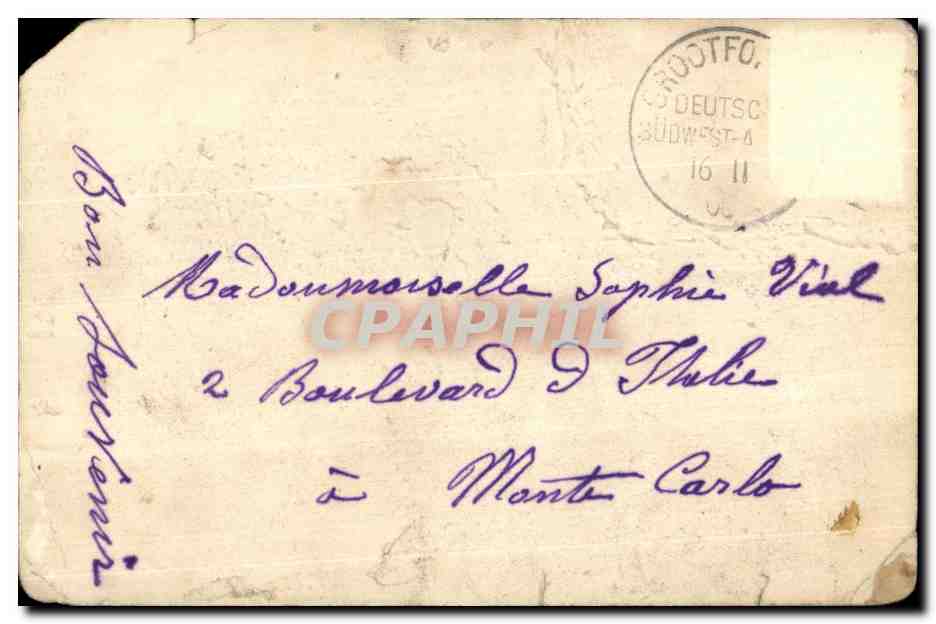 GROOTFO
DEUTSC
SÜDWEST-A
16 II
Bon Souvenir
Madoumoiselle Sophie Vial
2 Boulevard d Italie
à Monte Carlo
CPAPHIL